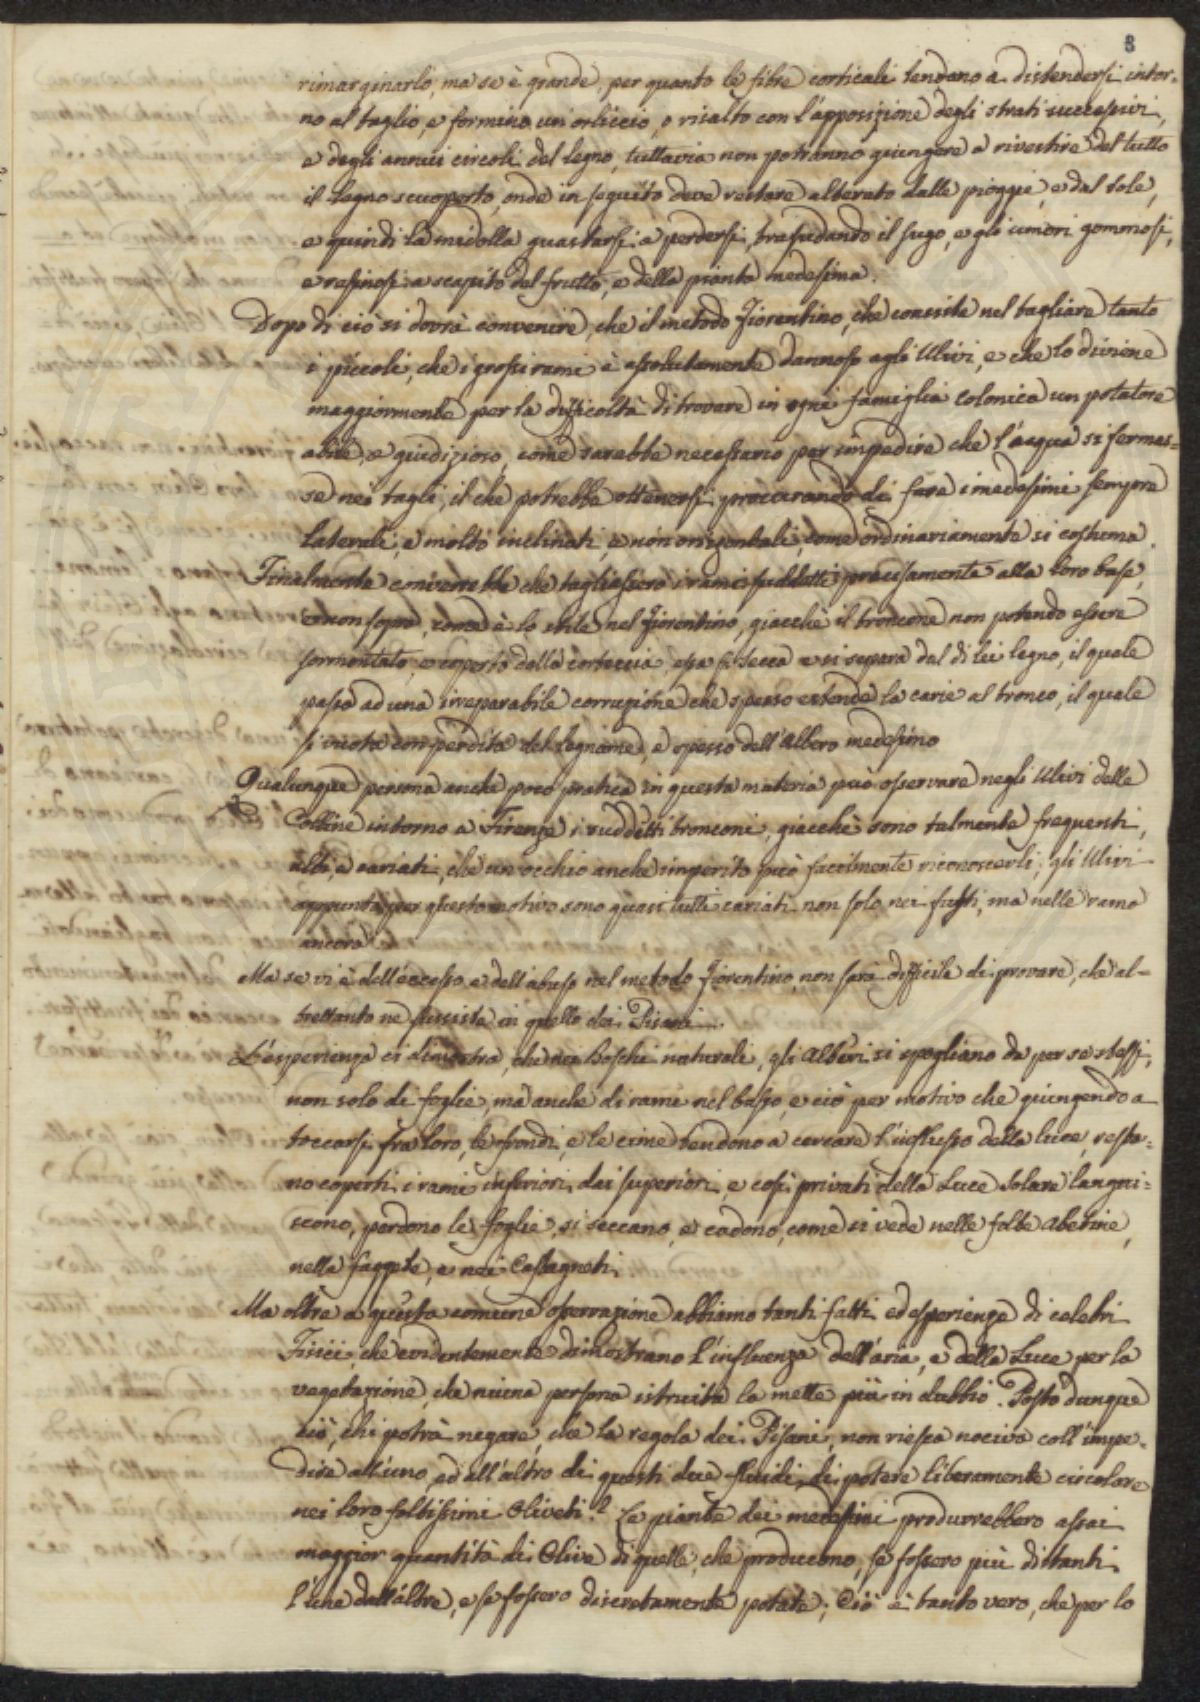 8
rimarginarlo, ma se è grande, per quanto le fibre corticali tendano a distendersi intor-
no al taglio, e formino un orliccio, o risalto con l'apposizione degli strati successivi,
e degli annui circoli del legno, tuttavia non potranno giungere a rivestire del tutto
il legno scuoperto, onde in seguito deve restare alterato dalle pioggie, e dal sole,
e quindi la midolla guastarsi, e perdersi, trasudando il sugo, e gli umori gommosi,
e resinosi a scapito del frutto, e della pianta medesima.
Dopo di ciò si dovrà convenire, che il metodo Fiorentino, che consiste nel tagliare tanto
i piccoli, che i grossi rami è assolutamente dannoso agli Ulivi, e che lo diviene
maggiormente per la difficoltà di trovare in ogni famiglia Colonica un potatore
abile, e giudizioso, come sarebbe necessario per impedire che l'acqua si fermas=
se nei tagli, il che potrebbe ottenersi procurando di fare i medesimi sempre
laterali, e molto inclinati e non orizontali, come ordinariamente si costuma.
Finalmente converrebbe che tagliassero i rami suddetti precisamente alla loro base,
e non sopra, come è lo stile nel Fiorentino, giacchè il broncone non potendo essere
sormontato, e coperto dalla corteccia, essa si secca e si separa dal di lei legno, il quale
passa ad una irreparabile corruzione che spesso estende la carie al tronco, il quale
si vuota con perdita del legname, e spesso dell'Albero medesimo
Qualunque persona anche poco pratica in questa materia può osservare negli Ulivi delle
Colline intorno a Firenze i suddetti bronconi, giacchè sono talmente frequenti,
alti, e cariati, che un occhio anche imperito può facilmente riconoscerli; gli Ulivi
appunto per questo motivo sono quasi tutti cariati non solo nei fusti, ma nelle rame
ancora
Ma se vi è dell'eccesso, e dell'abuso nel metodo Fiorentino, non sarà difficile di provare, che al-
trettanto ne sussista in quello dei Pisani.
L'esperienza ci dimostra, che nei Boschi naturali, gli Alberi si spogliano da per se stessi,
non solo di foglie, ma anche di rami nel basso, e ciò per motivo che giungendo a
toccarsi fra loro, le frondi, e le cime tendono a cercare l'influsso della luce, resta=
no coperti i rami inferiori dai superiori, e così privati della Luce Solare langui=
scono, perdono le foglie, si seccano, e cadono, come si vede nelle folte Abetine,
nelle faggete, e nei Castagneti.
Ma oltre a questa comune osservazione abbiamo tanti fatti ed esperienze di celebri
Fisici, che evidentemente dimostrano l'influenza dell'aria, e della Luce per la
vegetazione, che niuna persona istruita la mette più in dubbio. Posto dunque
ciò, chi potrà negare, che la regola dei Pisani, non riesca nociva coll'impe=
dire all'uno, ed all'altro di questi due fluidi, di potere liberamente circolare
nei loro foltissimi Oliveti? Le piante dei medesimi produrrebbero assai
maggior quantità di Olive di quelle, che producono, se fossero più distanti
l'une dall'altre, e se fossero discretamente potate; Ciò è tanto vero, che per lo